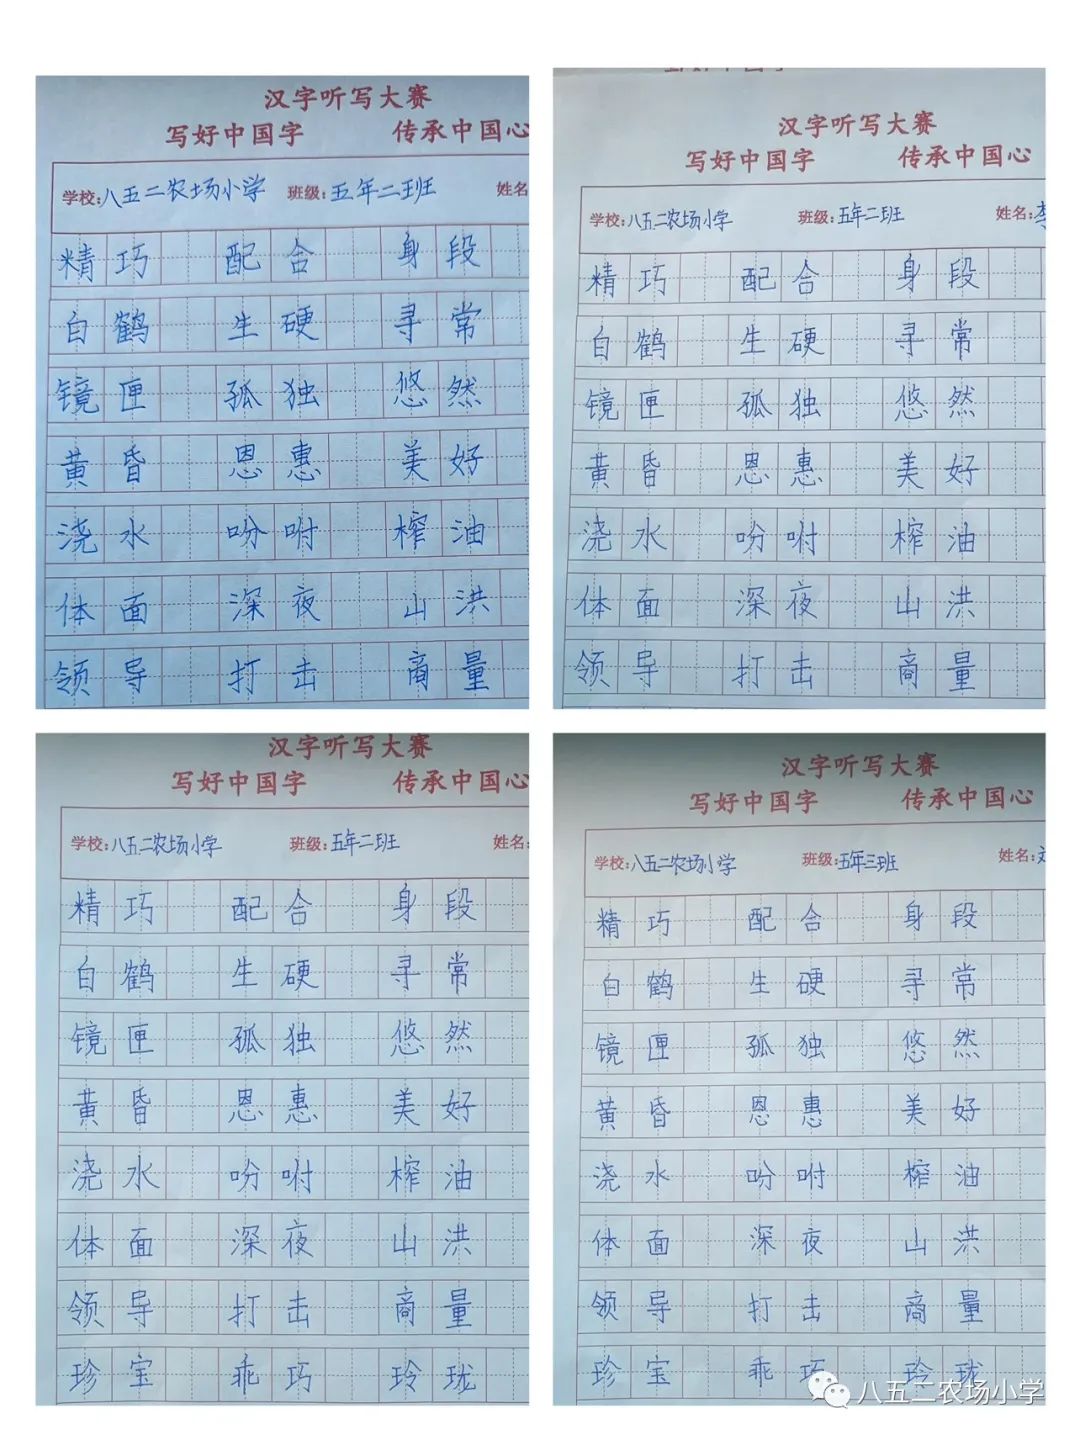 汉字听写大赛
写好中国字 传承中国心
学校:八五二农场小学 班级:五年二班 姓名
精巧 配合 身段
白鹤 生硬 寻常
镜匣 孤独 悠然
黄昏 恩惠 美好
浇水 吩咐 榨油
体面 深夜 山洪
领导 打击 商量
汉字听写大赛
写好中国字 传承中国心
学校:八五二农场小学 班级:五年二班 姓名:李
精巧 配合 身段
白鹤 生硬 寻常
镜匣 孤独 悠然
黄昏 恩惠 美好
浇水 吩咐 榨油
体面 深夜 山洪
领导 打击 商量
汉字听写大赛
写好中国字 传承中国心
学校:八五二农场小学 班级:五年二班 姓名:
精巧 配合 身段
白鹤 生硬 寻常
镜匣 孤独 悠然
黄昏 恩惠 美好
浇水 吩咐 榨油
体面 深夜 山洪
领导 打击 商量
珍宝 乖巧 玲珑
汉字听写大赛
写好中国字 传承中国心
学校:八五二农场小学 班级:五年三班 姓名:
精巧 配合 身段
白鹤 生硬 寻常
镜匣 孤独 悠然
黄昏 恩惠 美好
浇水 吩咐 榨油
体面 深夜 山洪
领导 打击 商量
珍宝 乖巧 玲珑
八五二农场小学